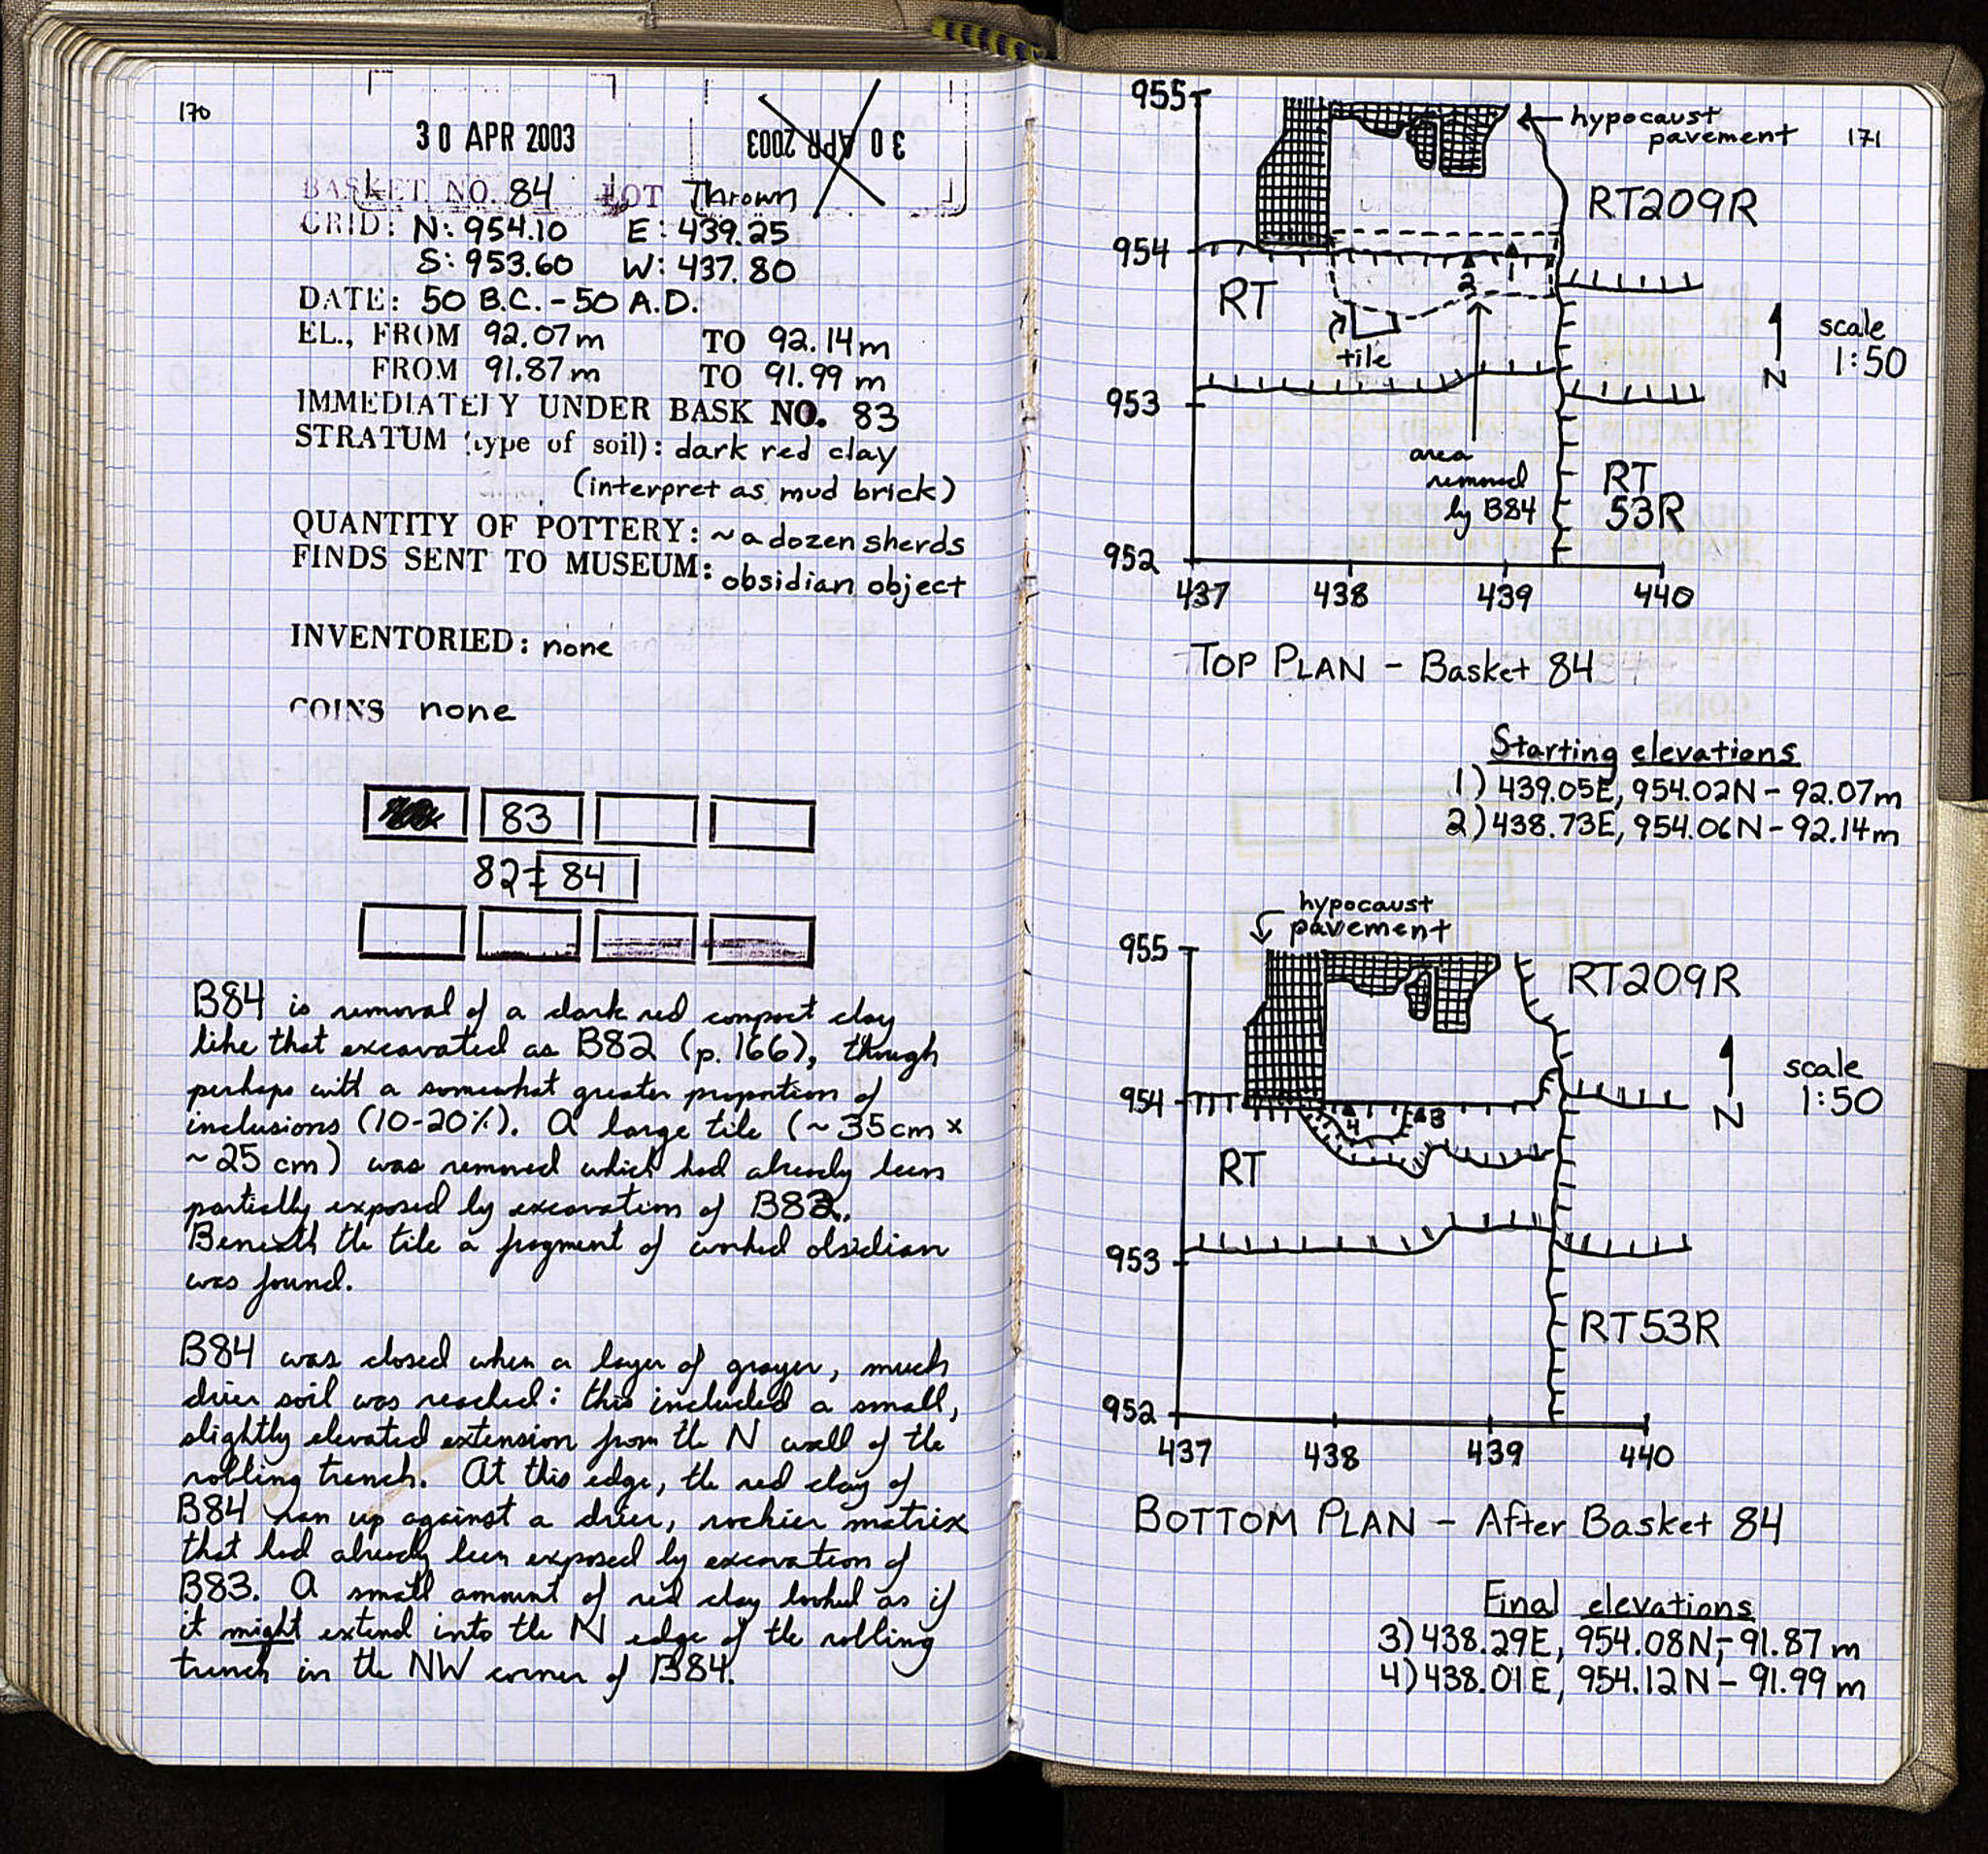 170
30 APR 2003
30 APR 2003
BASKET NO. 84 LOT Thrown
GRID: N: 954.10 E: 439.25
S: 953.60 W: 437.80
DATE: 50 B.C. - 50 A.D.
EL., FROM 92.07m TO 92.14m
FROM 91.87m TO 91.99 m
IMMEDIATELY UNDER BASK NO. 83
STRATUM (type of soil): dark red clay
(interpret as mud brick)
QUANTITY OF POTTERY: ~a dozen sherds
FINDS SENT TO MUSEUM: obsidian object
INVENTORIED: none
COINS none
83
82= 84
B84 is removal of a dark red compact clay
like that excavated as B82 (p. 166), though
perhaps with a somewhat greater proportion of
inclusions (10-20%). A large tile (~35cm ×
~25 cm) was removed which had already been
partially exposed by excavation of B82.
Beneath the tile a fragment of worked obsidian
was found.
B84 was closed when a layer of grayer, much
drier soil was reached: this included a small,
slightly elevated extension from the N wall of the
robbing trench. At this edge, the red clay of
B84 ran up against a drier, rockier matrix
that had already been exposed by excavation of
B83. A small amount of red clay looked as if
it might extend into the N edge of the robbing
trench in the NW corner of B84.
171
955
hypocaust
pavement
RT209R
954
1
2
RT
tile
N
scale
1:50
953
area
removed
by B84
RT
53R
952
437 438 439 440
TOP PLAN - Basket 84
Starting elevations
1) 439.05E, 954.02N - 92.07m
2) 438.73E, 954.06N - 92.14m
hypocaust
pavement
955
RT209R
scale
1:50
N
954
4
3
RT
953
RT53R
952
437 438 439 440
BOTTOM PLAN - After Basket 84
Final elevations
3) 438.29E, 954.08N - 91.87 m
4) 438.01E, 954.12N - 91.99 m